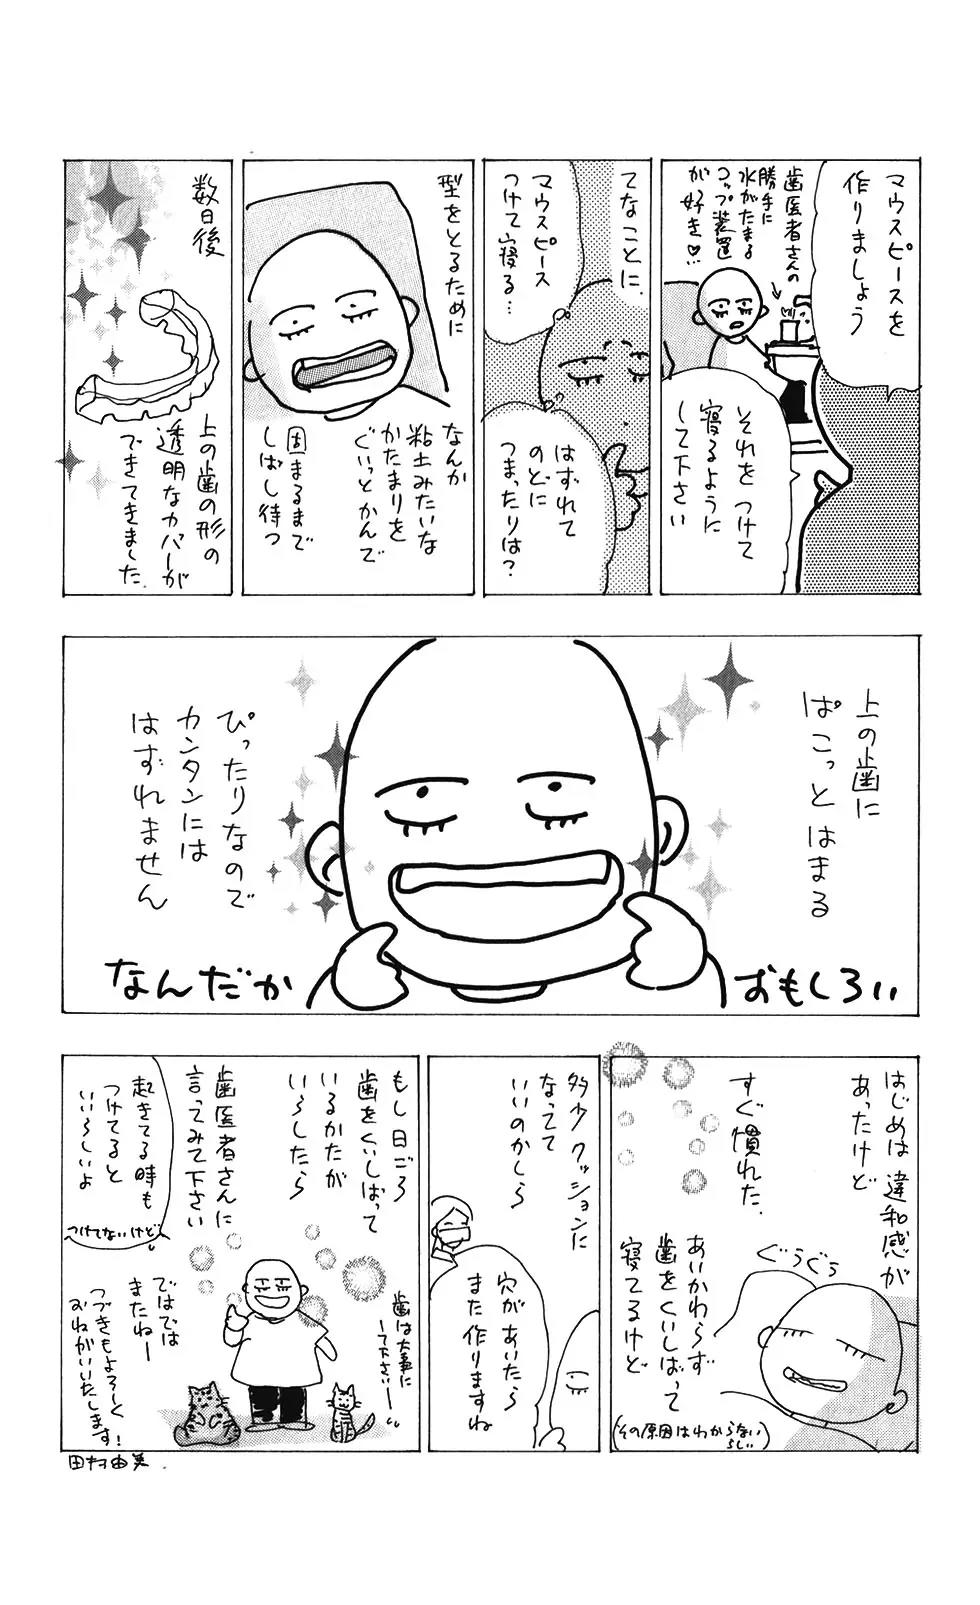 マウスピースを
作りましょう
歯医者さんの
勝手に
水がたまる
コップ装置
が好き♡
それをつけて
寝るように
して下さい
てなことに
マウスピース
つけて寝る…
はずれて
のどに
つまったりは?
型をとるために
なんか
粘土みたいな
かたまりを
ぐいっとかんで
固まるまで
しばし待つ
数日後
上の歯の形の
透明なカバーが
できてきました
上の歯に
ぱこっとはまる
ぴったりなので
カンタンには
はずれません
なんだか
おもしろい
はじめは違和感が
あったけど
すぐ慣れた
ぐうぐう
あいかわらず
歯をくいしばって
寝てるけど
(その原因はわからない
らしい)
多少クッションに
なってて
いいのかしら
穴があいたら
また作りますね
もし日ごろ
歯をくいしばって
いるかたが
いらしたら
歯医者さんに
言ってみて下さい
起きてる時も
つけてると
いいらしいよ
つけてないけど
歯は大事に
して下さいー
ではでは
またねー
つづきもよろしく
おねがいいたします!
田村由美